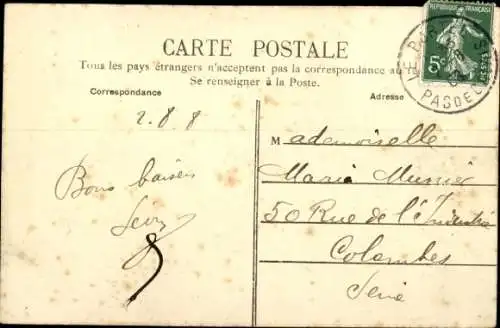 RÉPUBLIQUE FRANÇAISE
5c
POSTES
PAS DE
CARTE POSTALE
Tous les pays étrangers n'acceptent pas la correspondance au
Se renseigner à la Poste.
Correspondance
Adresse
2.8.8
Bons baisers
Mademoiselle
Marie
50 Rue de l'
Colombes
Seine